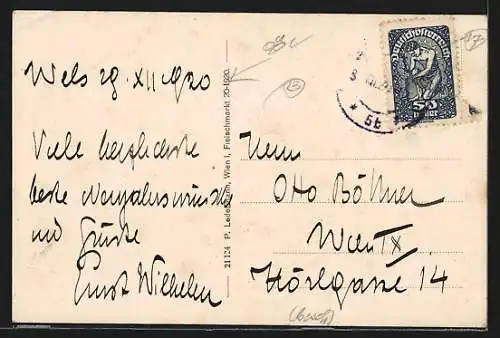 Wels 29. XII 1920
Viele herzlichste
beste Neujahrswünsche
und Grüsse
Ernst Wilhelm
21124 P. Ledermann, Wien I, Fleischmarkt 20-1920.
Deutschösterreich
50
Heller
* 6b
Herrn
Otto Böhmer
Wien IX
Hörlgasse 14